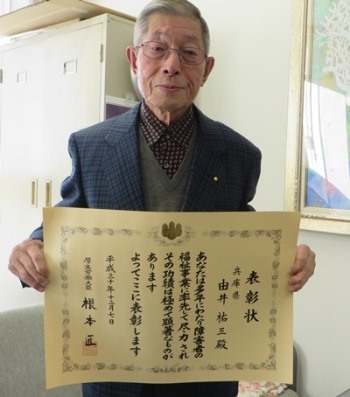 表彰状
兵庫県
由井祐三殿
あなたは多年にわたり障害者の
福祉事業に率先して尽力され
その功績は極めて顕著なものが
あります
よってここに表彰します
平成三十年十二月七日
厚生労働大臣
根本匠